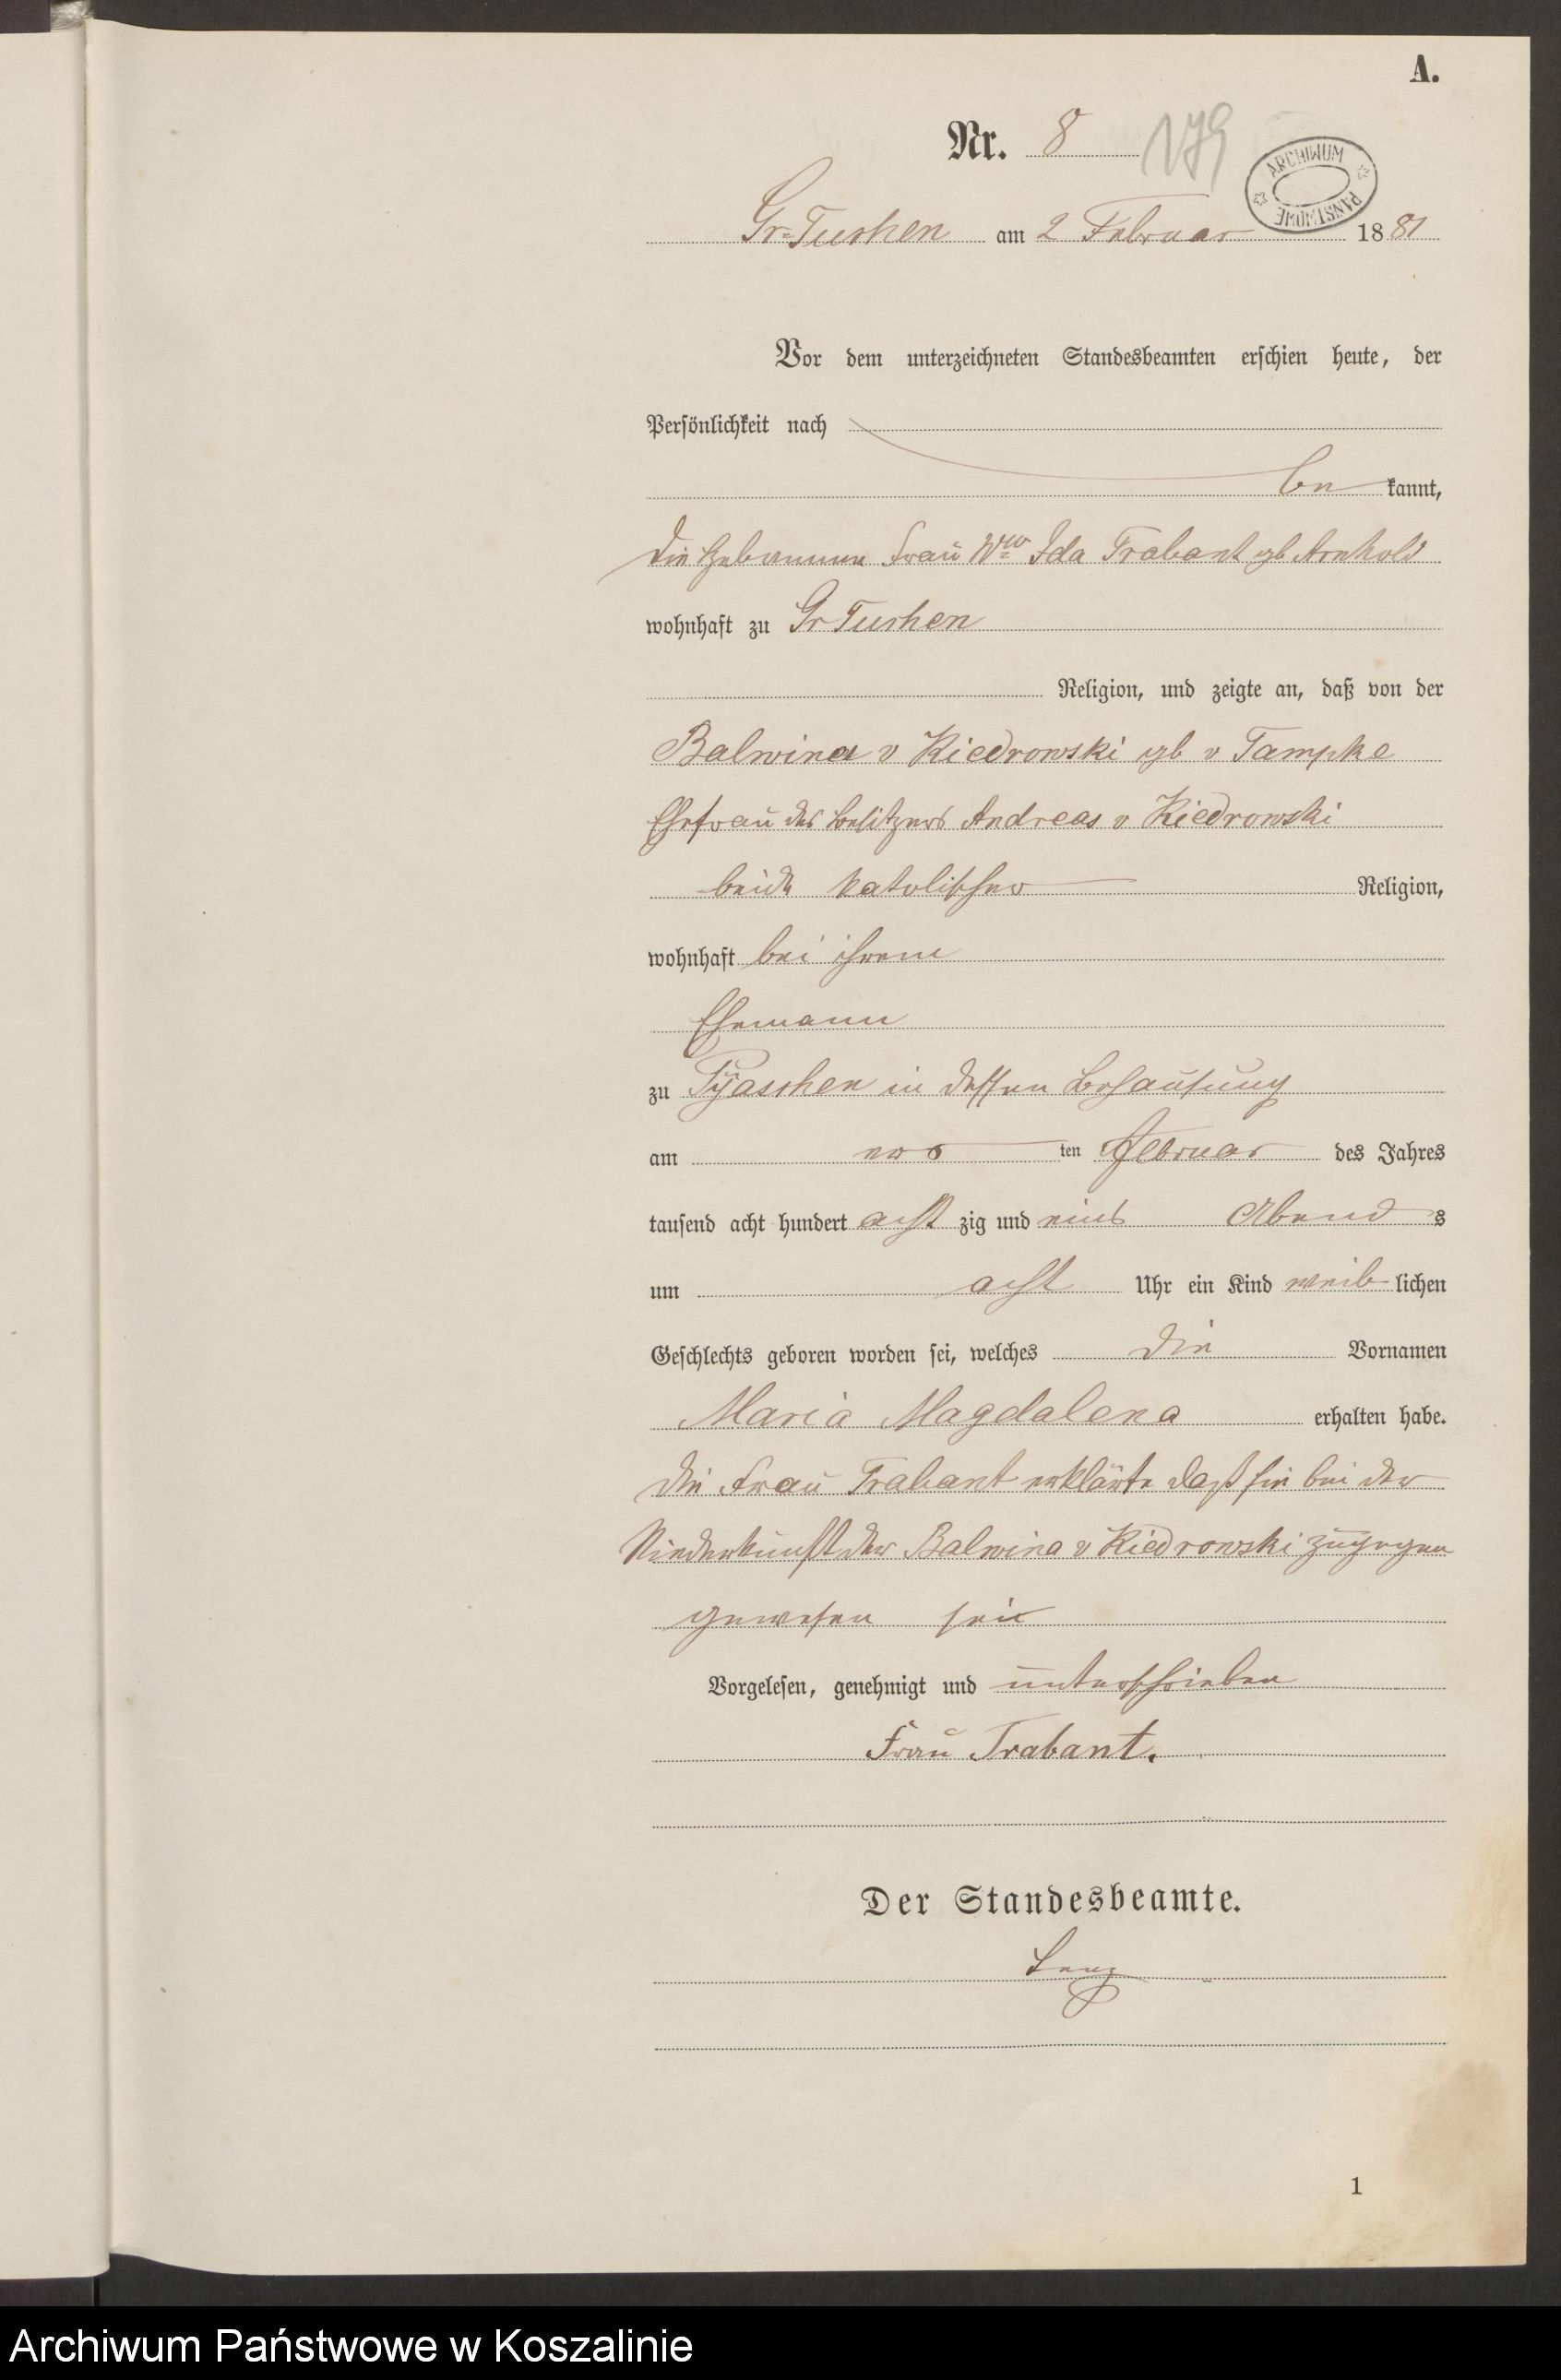 A.
Nr. 8 179
ARCHIWUM PAŃSTWOWE
Gr. Tuchen am 2 Februar 1881
Vor dem unterzeichneten Standesbeamten erschien heute, der
Persönlichkeit nach
be kannt,
die Hebamme Frau Wwe Ida Trabant gb Arnhold
wohnhaft zu Gr Tuchen
Religion, und zeigte an, daß von der
Balwina v Kiedrowski gb v Tampke
Ehefrau des Besitzers Andreas v Kiedrowski
beide katolischer Religion,
wohnhaft bei ihrem
Ehemann
zu Pyaschen in dessen Behausung
am ers ten Februar des Jahres
tausend acht hundert acht zig und eins Abend s
um acht Uhr ein Kind weib lichen
Geschlechts geboren worden sei, welches die Vornamen
Maria Magdalena erhalten habe.
Die Frau Trabant erklärte daß sie bei der
Niederkunft der Balwina v Kiedrowski zugegen
gewesen sei
Vorgelesen, genehmigt und unterschrieben
Frau Trabant.
Der Standesbeamte.
Lenz
1
Archiwum Państwowe w Koszalinie